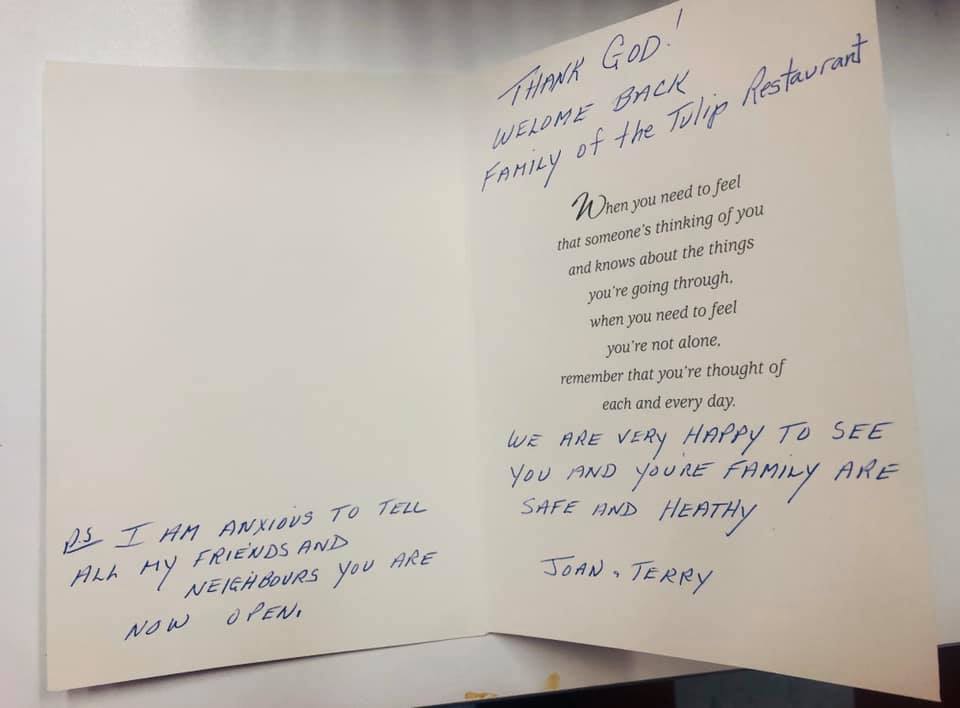 THANK GOD!
WELOME BACK
FAMILY of the Tulip Restaurant
When you need to feel
that someone's thinking of you
and knows about the things
you're going through,
when you need to feel
you're not alone,
remember that you're thought of
each and every day.
WE ARE VERY HAPPY TO SEE
YOU AND YOU'RE FAMILY ARE
SAFE AND HEATHY
JOAN & TERRY
P.S I AM ANXIOUS TO TELL
ALL MY FRIENDS AND
NEIGHBOURS YOU ARE
NOW OPEN.